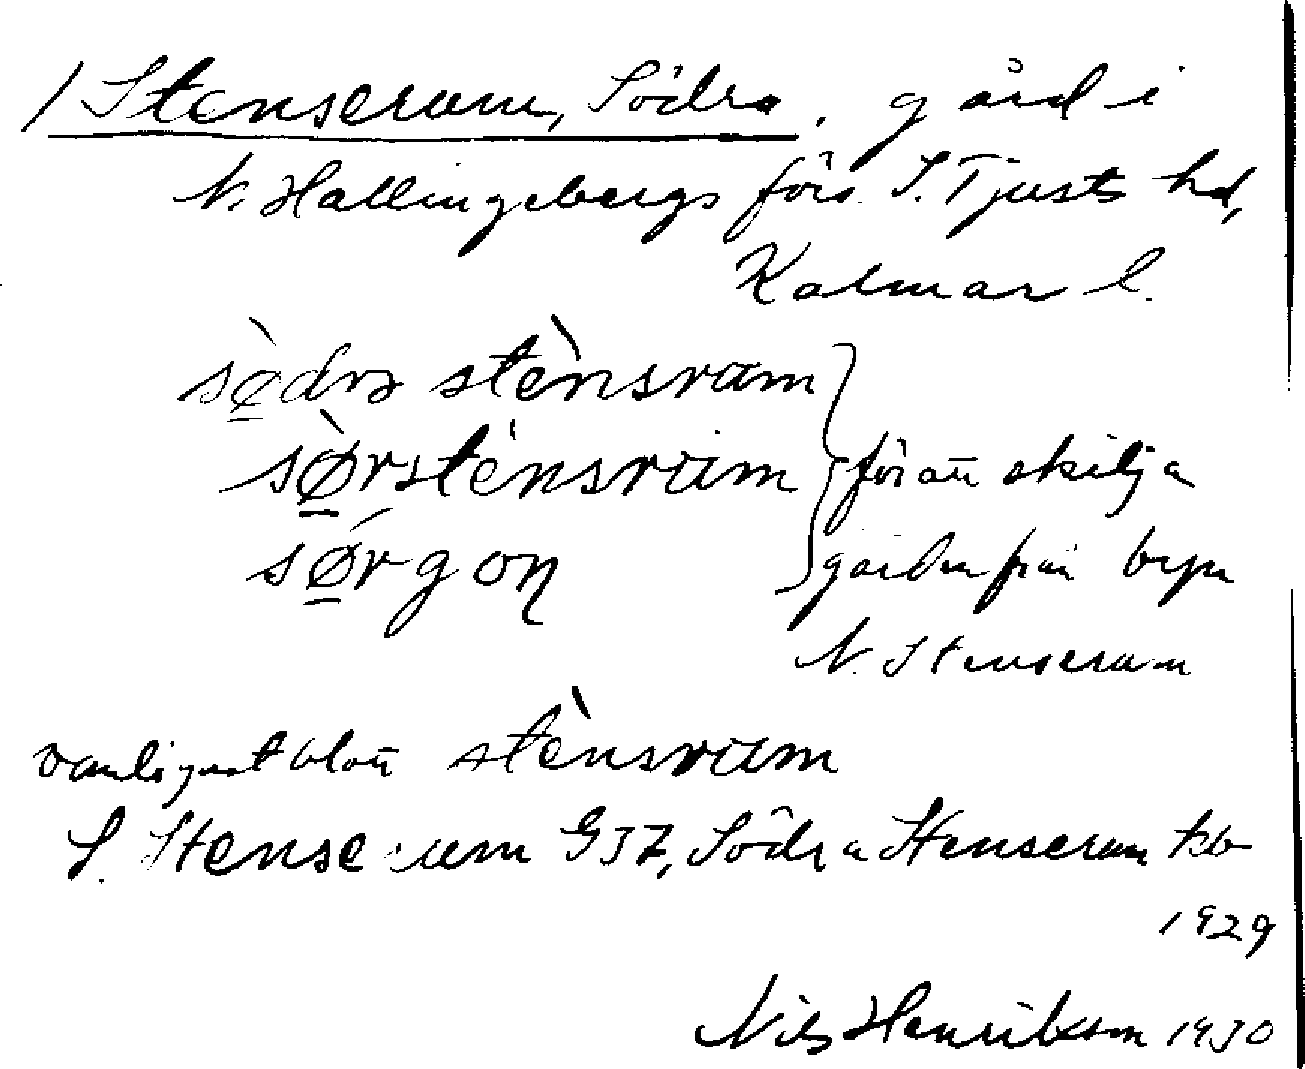 / Stenseram, Södra, gård i
N. Hallingebergs förs. S. Tjusts hd,
Kalmar l.
sø̀drɑ stènsram
sø̀rstensram
för att skilja
sørgoη
gården från byn
N. Stenseram
vanligast blott stènsram
S. Stenseram GJZ, Södra Stenseram tkb
1929
Nils Henrikson 1930